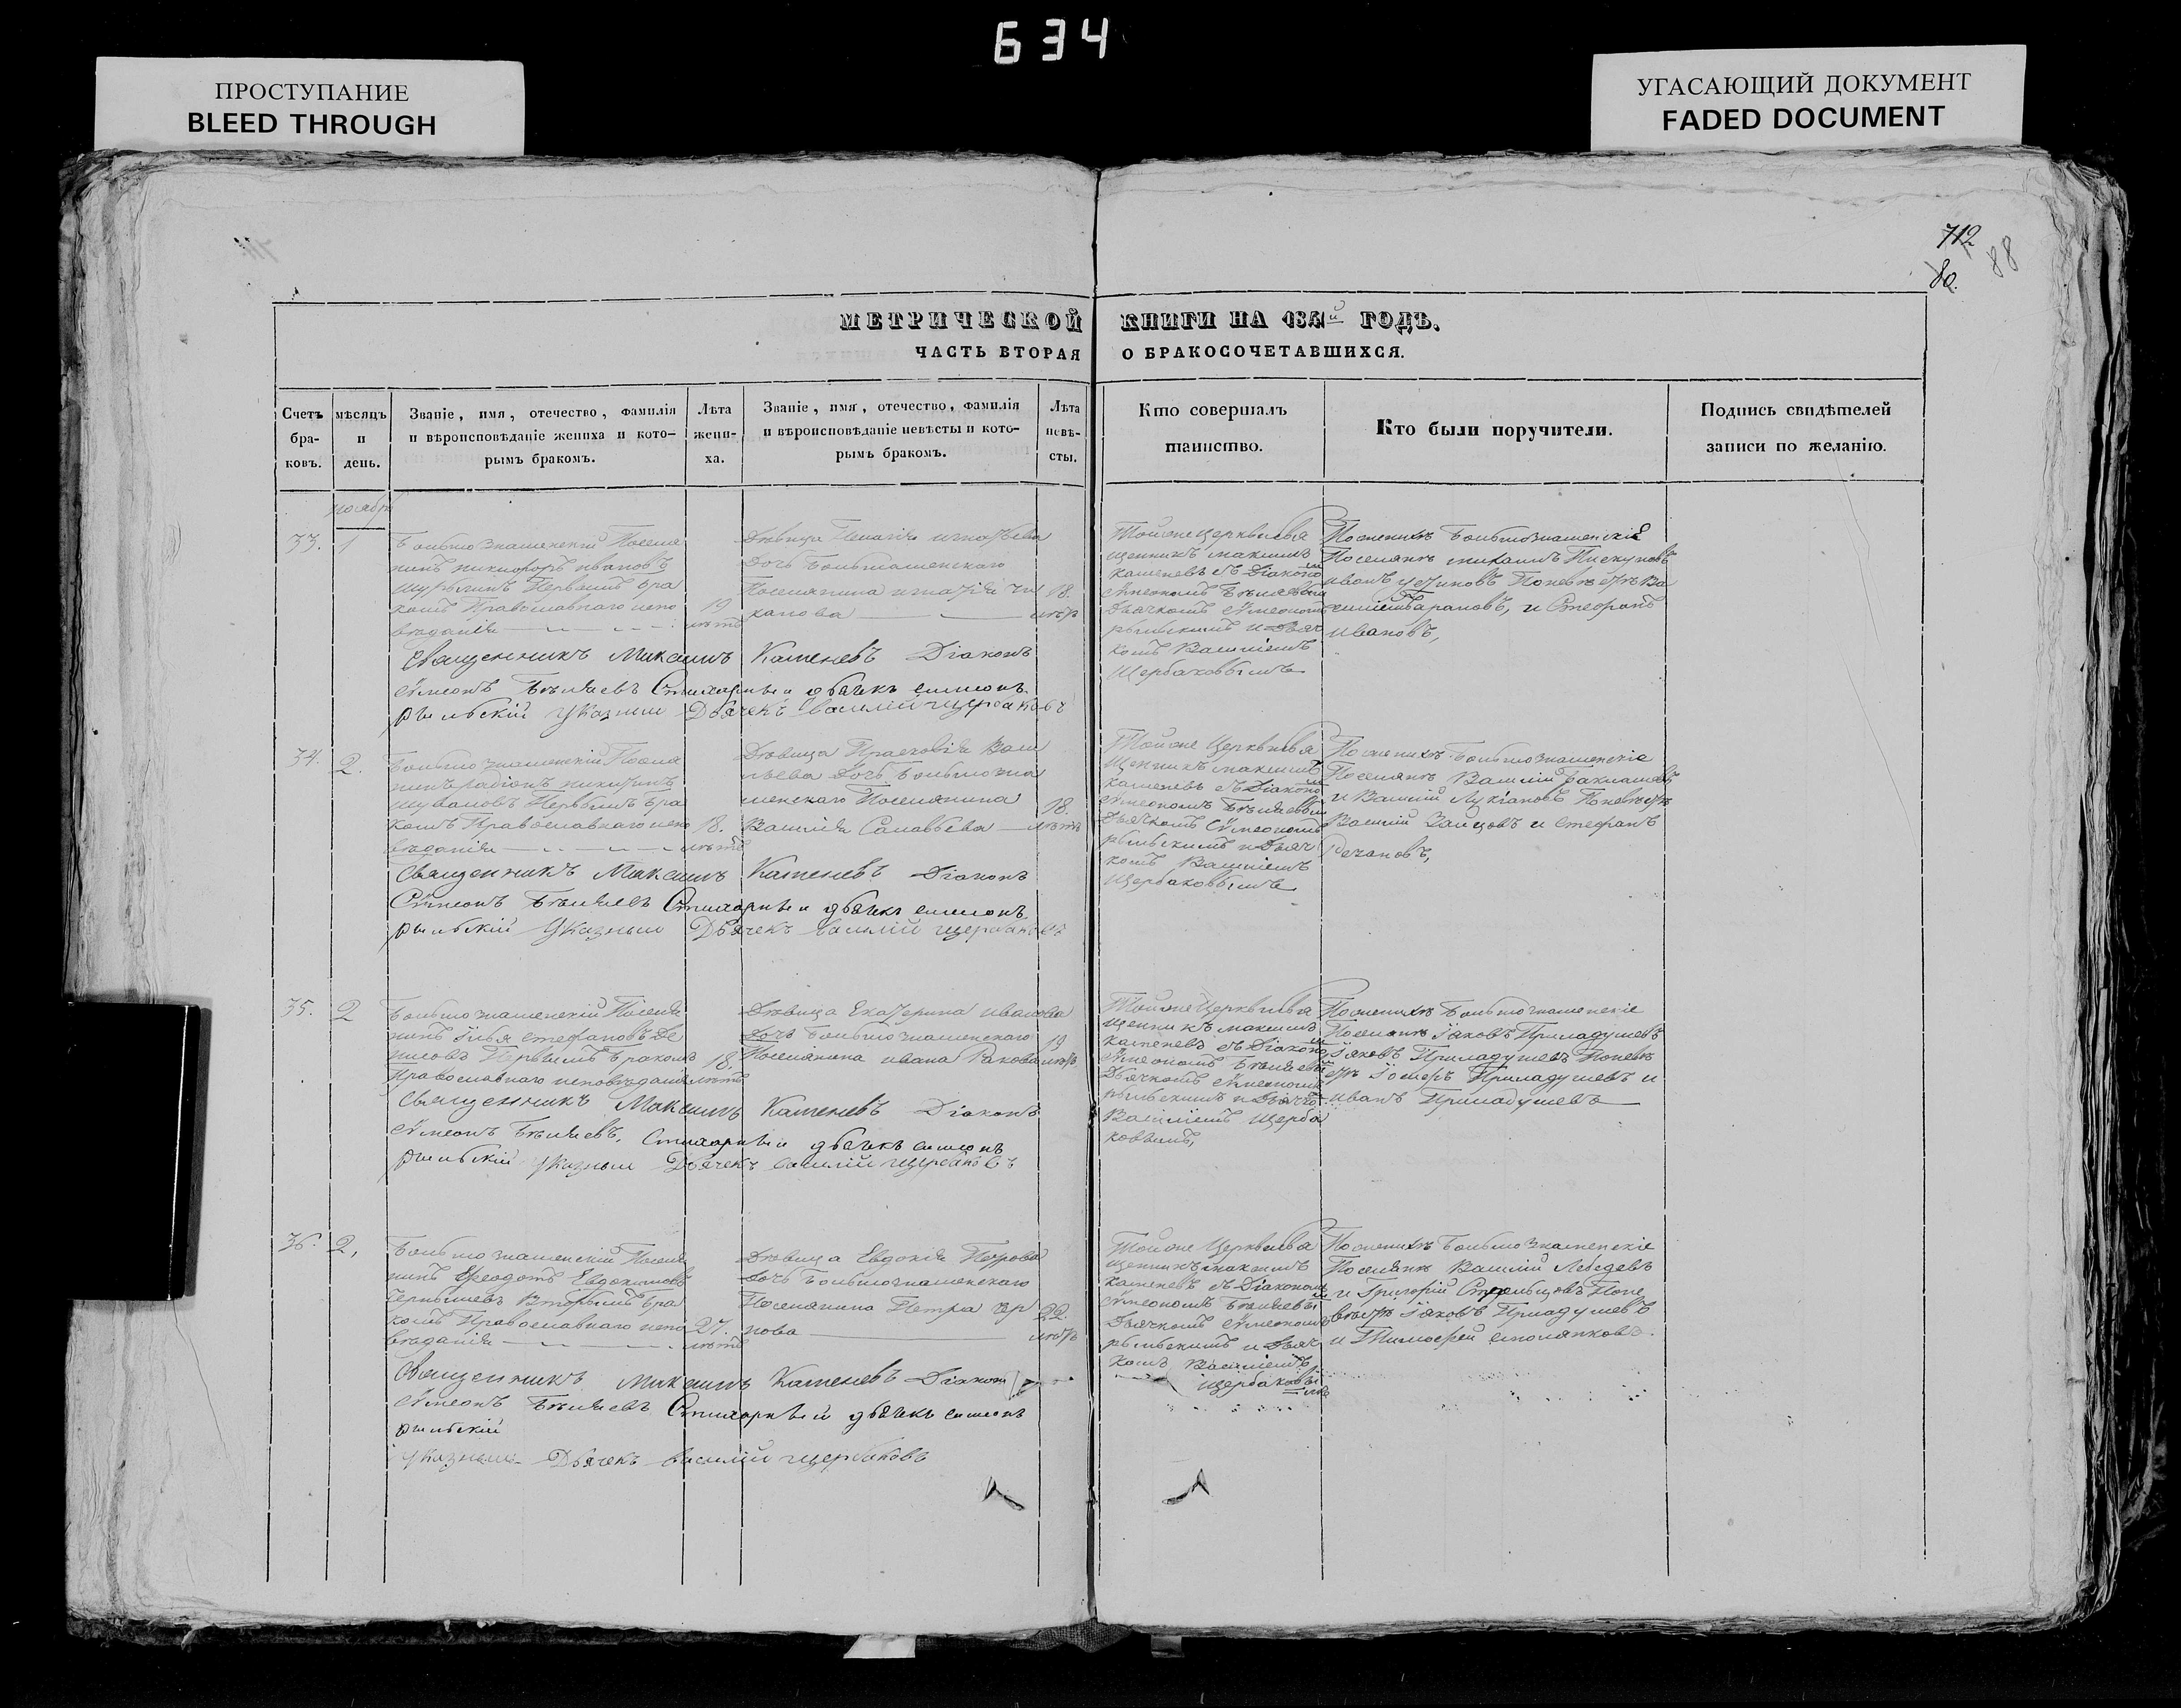 634
ПРОСТУПАНИЕ
BLEED THROUGH
УГАСАЮЩИЙ ДОКУМЕНТ
FADED DOCUMENT
712
80.
88
МЕТРИЧЕСКОЙ КНИГИ НА 1841й ГОДЪ.
ЧАСТЬ ВТОРАЯ О БРАКОСОЧЕТАВШИХСЯ.
Счетъ бра-ковъ.
мѣсяцъ и день.
Званіе, имя, отечество, фамилія
и вѣроисповѣданіе жениха и кото-
рымъ бракомъ.
Лѣта жени-ха.
Званіе, имя, отечество, фамилія
и вѣроисповѣданіе невѣсты и кото-
рымъ бракомъ.
Лѣта невѣ-сты.
Кто совершалъ
таинство.
Кто были поручители.
Подпись свидѣтелей
записи по желанію.
ноября
33. 1
Большознаменскій Поселя
нинъ никифоръ ивановъ
Первымъ бра
комъ Православнаго испо
вѣданія
19
лѣтъ
Дѣвица Пелагія игнатьева
Дочь Большзнаменскаго
Поселянина игнатія Чи
канова
18.
лѣтъ
Тойже Церкви свя
щенникъ максимъ
Каменевъ съ Діаконо
мъ
Сѵмеономъ Бѣляевым
Дьячкомъ Сѵмеономъ
рыльскимъ и Дьяч
комъ Василіемъ
Щербаковымъ
По женихѣ Большознаменскіе
Поселяне михаилъ Пискуновъ
иванъ устиновъ По невѣстѣ Ва
силій Барановъ, и Стефанъ
ивановъ,
Священникъ Максимъ Каменевъ Діаконъ
Сѵмеонъ Бѣляевъ Стихарный дьячекъ симеонъ
рыльскій Указный Дьячекъ василій щербаковъ
34. 2.
Большознаменскій Поселя
нинъ родіонъ никитинъ
шуваловъ Первымъ бра
комъ Православнаго испо
вѣданія
18.
лѣтъ
Дѣвица Прасковія Васи
льева Дочь Большозна
менскаго Поселянина
Василія Салавьева
18.
лѣтъ
Тойже Церкви свя
щенникъ максимъ
Каменевъ съ Діаконо
мъ
Сѵмеономъ Бѣляевым
Дьячкомъ Сѵмеономъ
рыльскимъ и Дьяч
комъ Василіемъ
Щербаковымъ
По женихѣ Большознаменскіе
Поселяне Василій Баклановъ
и Василій Лукіановъ По невѣстѣ
Василій Зайцовъ и стефанъ
Священникъ Максимъ Каменевъ Діаконъ
Сѵмеонъ Бѣляевъ Стихарный дьячекъ симеонъ
рыльскій Указный Дьячекъ василій щербаковъ
35. 2
Большознаменскій Поселя
нинъ Илья стефановъ Де
нисовъ Первымъ бракомъ
Православнаго исповѣданія
18.
лѣтъ
Дѣвица Екатерина иванова
Дочь Большознаменскаго
Поселянина ивана Ракова
19
лѣтъ
Тойже Церкви свя
щенникъ максимъ
Каменевъ съ Діаконо
мъ
Сѵмеономъ Бѣляевы
мъ
Дьячкомъ Сѵмеономъ
рыльскимъ и Дьячко
Василіемъ Щерба
ковымъ,
По женихѣ Большознаменскіе
Поселяне Іаковъ Приладушевъ
Іаковъ Приладушевъ По невѣ
стѣ Приладушевъ и
иванъ Приладушевъ
Священникъ Максимъ Каменевъ Діаконъ
Сѵмеонъ Бѣляевъ, Стихарный дьячекъ симеонъ
рыльскій указный Дьячекъ василій щербаковъ
36. 2,
Большознаменскій Поселя
нинъ Ѳеодотъ Евдокимовъ
Чернышевъ Вторымъ бра
комъ Православнаго испо
вѣданія
27.
лѣтъ
Дѣвица Евдокія Петрова
Дочь Большознаменскаго
Поселянина Петра Чер
нова
22.
лѣтъ
Тойже Церкви свя
щенникъ максимъ
Каменевъ съ Діакономъ
Сѵмеономъ Бѣляевы
мъ
Дьячкомъ Сѵмеономъ
рыльскимъ и Дьяч
комъ Василіемъ
Щербаковы
мъ
По женихѣ Большознаменскіе
Поселяне Василій Лебедевъ
и Григорій Стрельцовъ По не
вѣстѣ Іаковъ Приладушевъ
и Тимофей смоляковъ.
Священникъ Максимъ Каменевъ Діаконъ
Сѵмеонъ Бѣляевъ Стихарный дьячекъ симеонъ
рыльскій
указный Дьячекъ василій щербаковъ